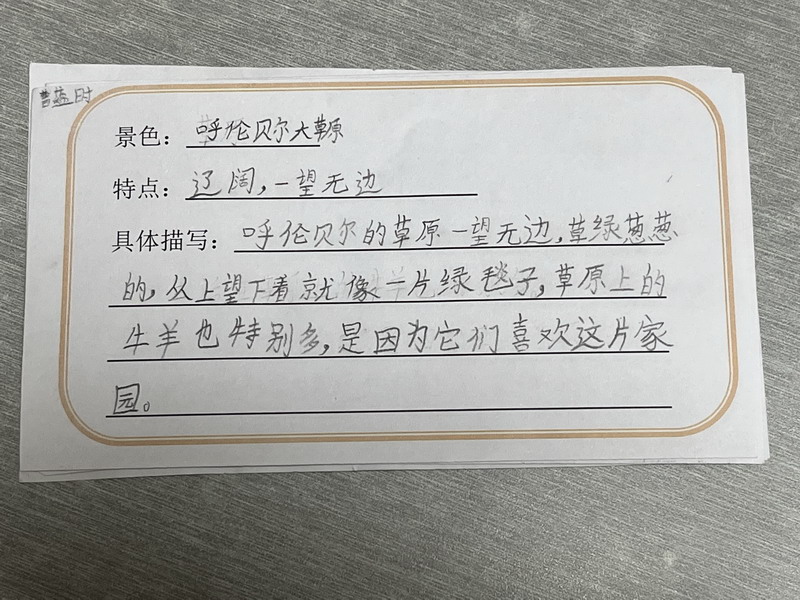 景色：呼伦贝尔大草原
特点：辽阔，一望无边
具体描写：呼伦贝尔的草原一望无边，草绿葱葱
的，从上望下看就像一片绿毯子，草原上的
牛羊也特别多，是因为它们喜欢这片家
园。